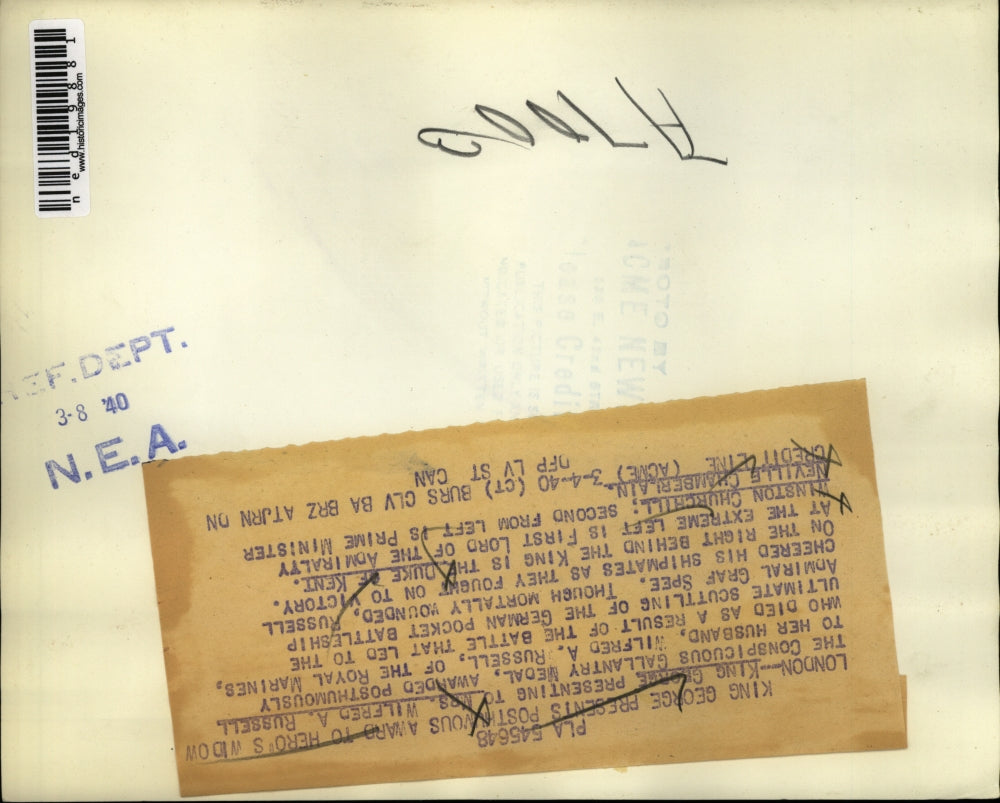 ned19881
www.historicimages.com
REF. DEPT.
3-8 '40
N.E.A.
PHOTO BY
ACME NEW
PLA 545648
KING GEORGE PRESENTS POSTHUMOUS AWARD TO HERO'S WIDOW
LONDON--KING GEORGE PRESENTING TO MRS. WILFRED A. RUSSELL
THE CONSPICUOUS GALLANTRY MEDAL, AWARDED POSTHUMOUSLY
TO HER HUSBAND, WILFRED A. RUSSELL, OF THE ROYAL MARINES,
WHO DIED AS A RESULT OF THE BATTLE THAT LED TO THE
ULTIMATE SCUTTLING OF THE GERMAN POCKET BATTLESHIP
ADMIRAL GRAF SPEE. THOUGH MORTALLY WOUNDED, RUSSELL
CHEERED HIS SHIPMATES AS THEY FOUGHT ON TO VICTORY.
ON THE RIGHT BEHIND THE KING IS THE DUKE OF KENT.
AT THE EXTREME LEFT IS FIRST LORD OF THE ADMIRALTY
WINSTON CHURCHILL; SECOND FROM LEFT IS PRIME MINISTER
NEVILLE CHAMBERLAIN.
CREDIT LINE (ACME) 3-4-40 (CT) BURS CLV BA BRZ ATJRN DN
DFP LV ST CAN